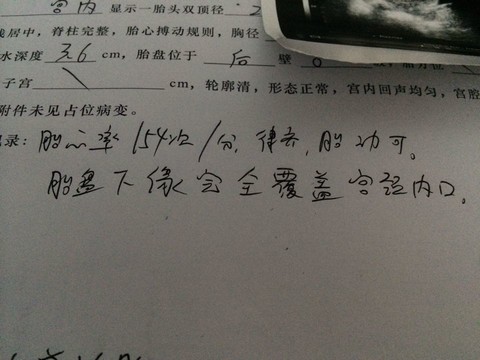 宫内 显示一胎头双顶径
线居中，脊柱完整，胎心搏动规则，胸径
水深度 3.6 cm，胎盘位于 后 壁 0
子宫 \ cm，轮廓清，形态正常，宫内回声均匀，宫腔
附件未见占位病变。
录：胎心率 154次/分，律齐，胎动可。
胎盘下缘完全覆盖宫颈内口。